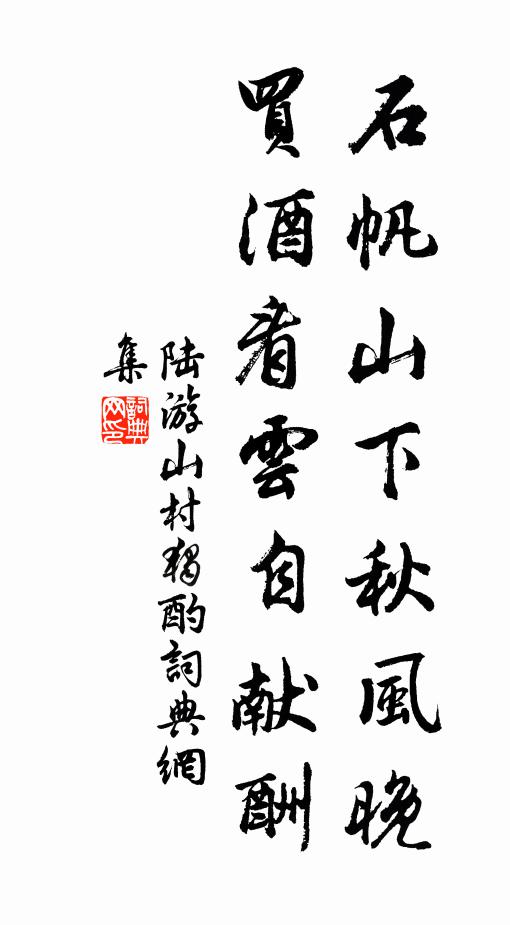 石帆山下秋風晚
買酒看雲自献酬
陆游山村獨酌詞典網
集
詞典
网印